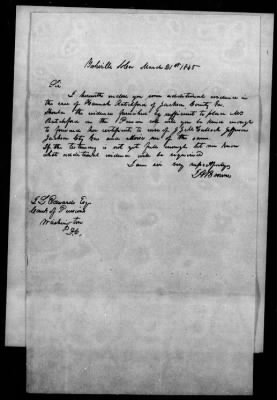 March 21st 1845
Sir
I herewith enclose you some additional evidence in
the case of Hannah Rutchford of Jackson County Geo.
Should the evidence furnished be sufficient to place Mrs
Rutchford on the Pension roll will you be kind enough
to forward her certificate to care of Jefferson
Jackson City Geo and advise me of the same
If the testimony is not yet full enough let me know
what additional evidence will be required
I am sir very respectfully
J L Edwards Esqr
Comr of Pensions
Washington
D.C.